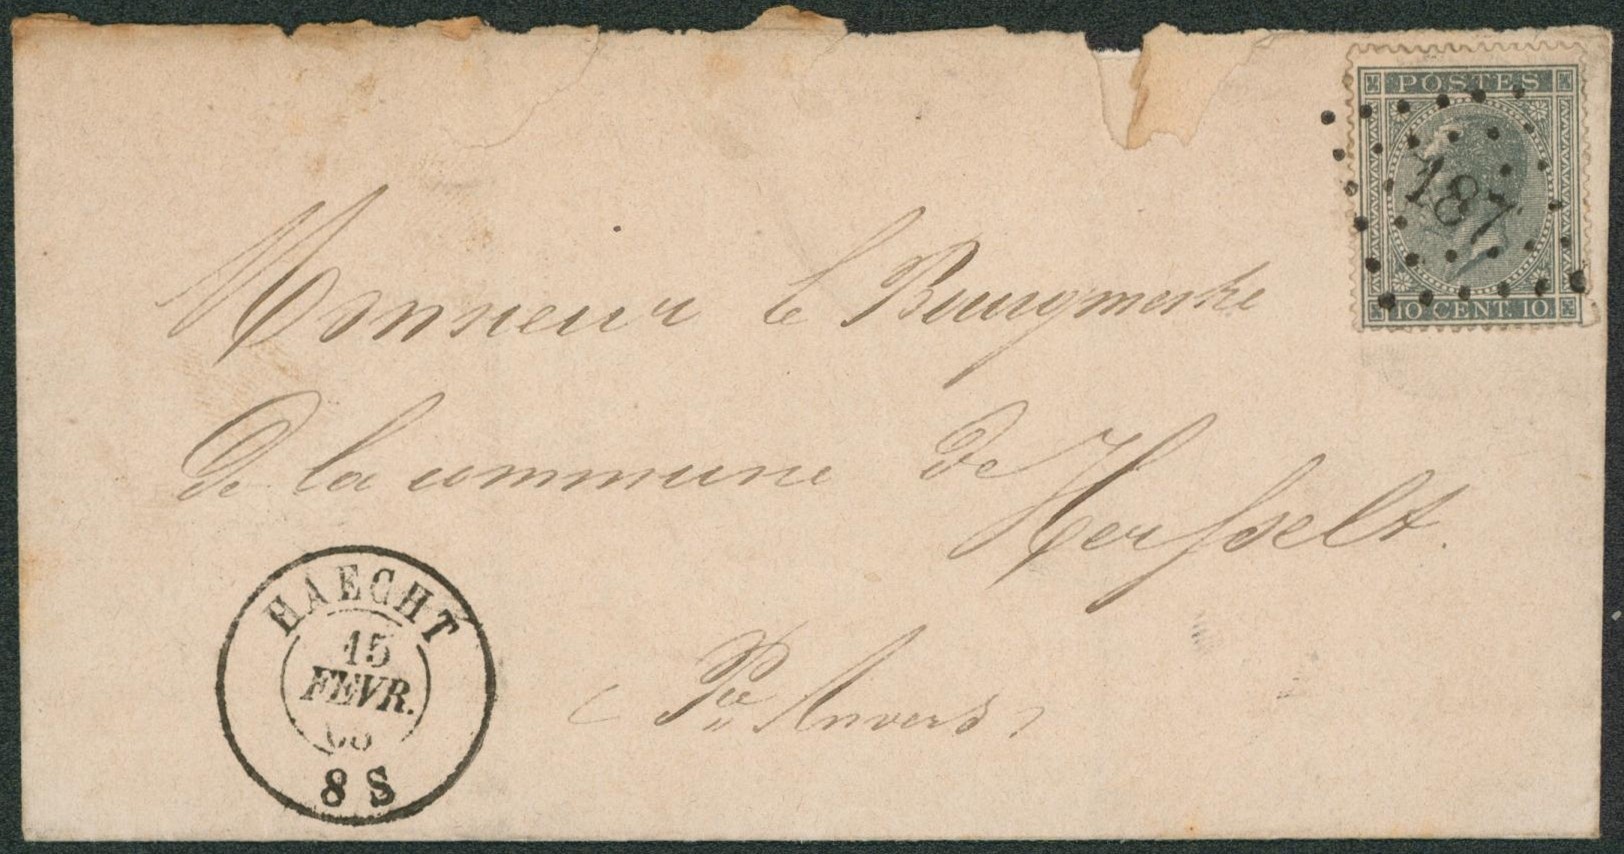 POSTES
187
10 CENT. 10
Monsieur le Bourgmestre
De la commune de
Hersselt.
(Pce Anvers)
HAECHT
15
FEVR.
8 S